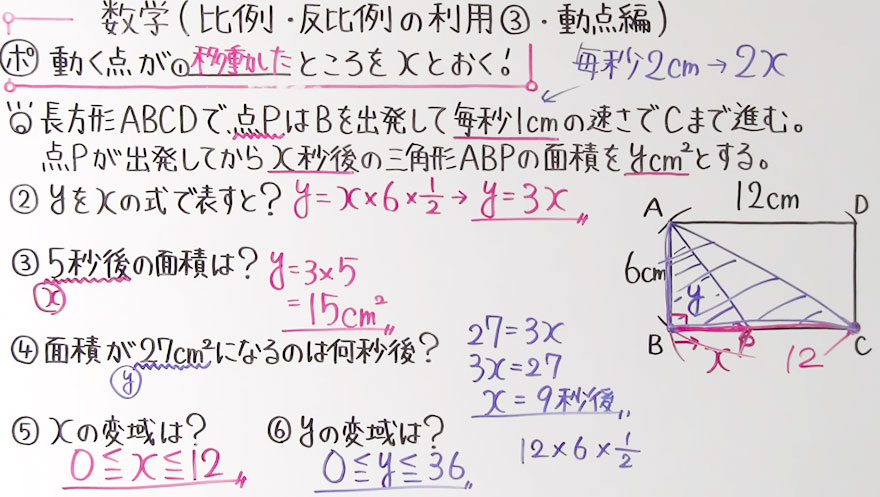 数学(比例・反比例の利用③・動点編)
ポ 動く点が①移動したところをxとおく! 毎秒2cm→2x
長方形ABCDで、点PはBを出発して毎秒1cmの速さでCまで進む。
点Pが出発してからx秒後の三角形ABPの面積をycm²とする。
② yをxの式で表すと? y=x×6×1/2→y=3x
③ 5秒後の面積は? y=3×5
x =15cm²
④ 面積が27cm²になるのは何秒後? 27=3x
y 3x=27
x=9秒後
⑤ xの変域は? ⑥ yの変域は?
0≦x≦12 0≦y≦36 12×6×1/2
A 12cm D
6cm y
B P C
x 12